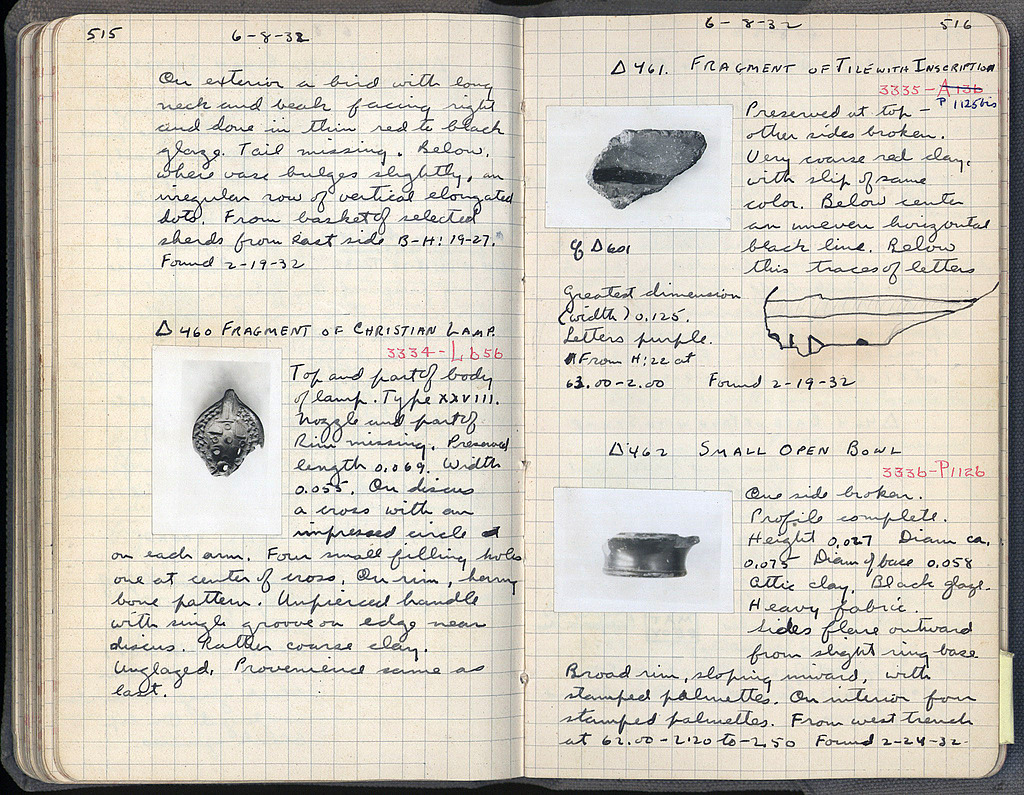 515
6-8-32
On exterior a bird with long
neck and beak facing right
and done in thin red to black
glaze. Tail missing. Below,
where vase bulges slightly, an
irregular row of vertical elongated
dots. From basket of selected
sherds from East side B-H: 19-27.
Found 2-19-32
Δ 460 FRAGMENT OF CHRISTIAN LAMP.
3334-L656
Top and part of body
of lamp. Type XXVIII.
Nozzle and part of
Rim missing. Preserved
length 0.069. Width
0.055. On discus
a cross with an
impressed circle
on each arm. Four small filling holes
one at center of cross. On rim, herring
bone pattern. Unpierced handle
with single groove on edge near
discus. Rather coarse clay.
Unglazed. Provenience same as
last.
6-8-32
516
Δ 461. FRAGMENT OF TILE WITH INSCRIPTION
3335-A136
P 1125 bis
Preserved at top -
other sides broken.
Very coarse red clay,
with slip of same
color. Below center
an uneven horizontal
black line. Below
this traces of letters
Δ 601
Greatest dimension
(width) 0.125.
Letters purple.
From H:22 at
63.00-2.00 Found 2-19-32
Δ 462 SMALL OPEN BOWL
3336-P1126
One side broken.
Profile complete.
Height 0.027 Diam ca.
0.075 Diam of base 0.058
Attic clay. Black glaze.
Heavy fabric.
Sides flare outward
from slight ring base.
Broad rim, sloping inward, with
stamped palmettes. On interior four
stamped palmettes. From west trench
at 62.00-2.20 to -2.50 Found 2-24-32.